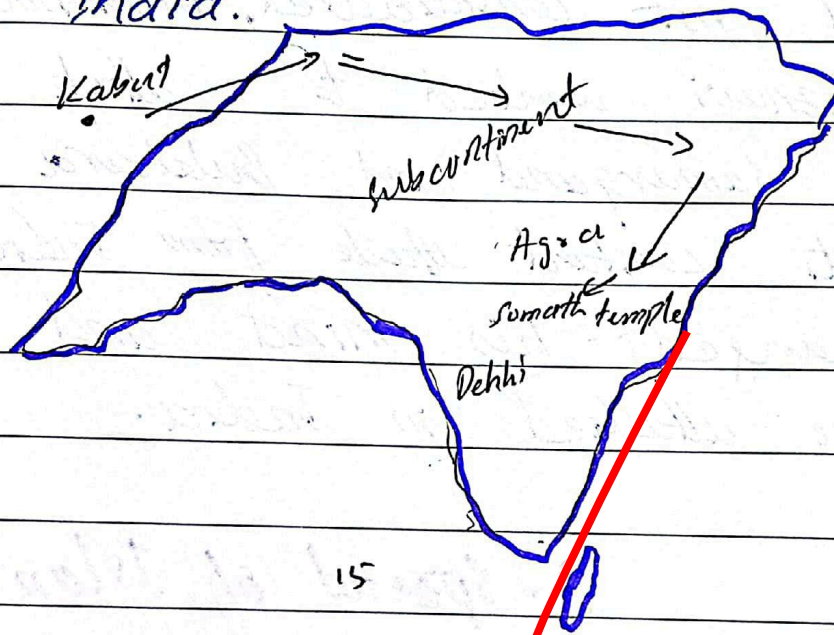 India.
Kabul
subcontinent
Agra
Somnath temple
Dehhi
15